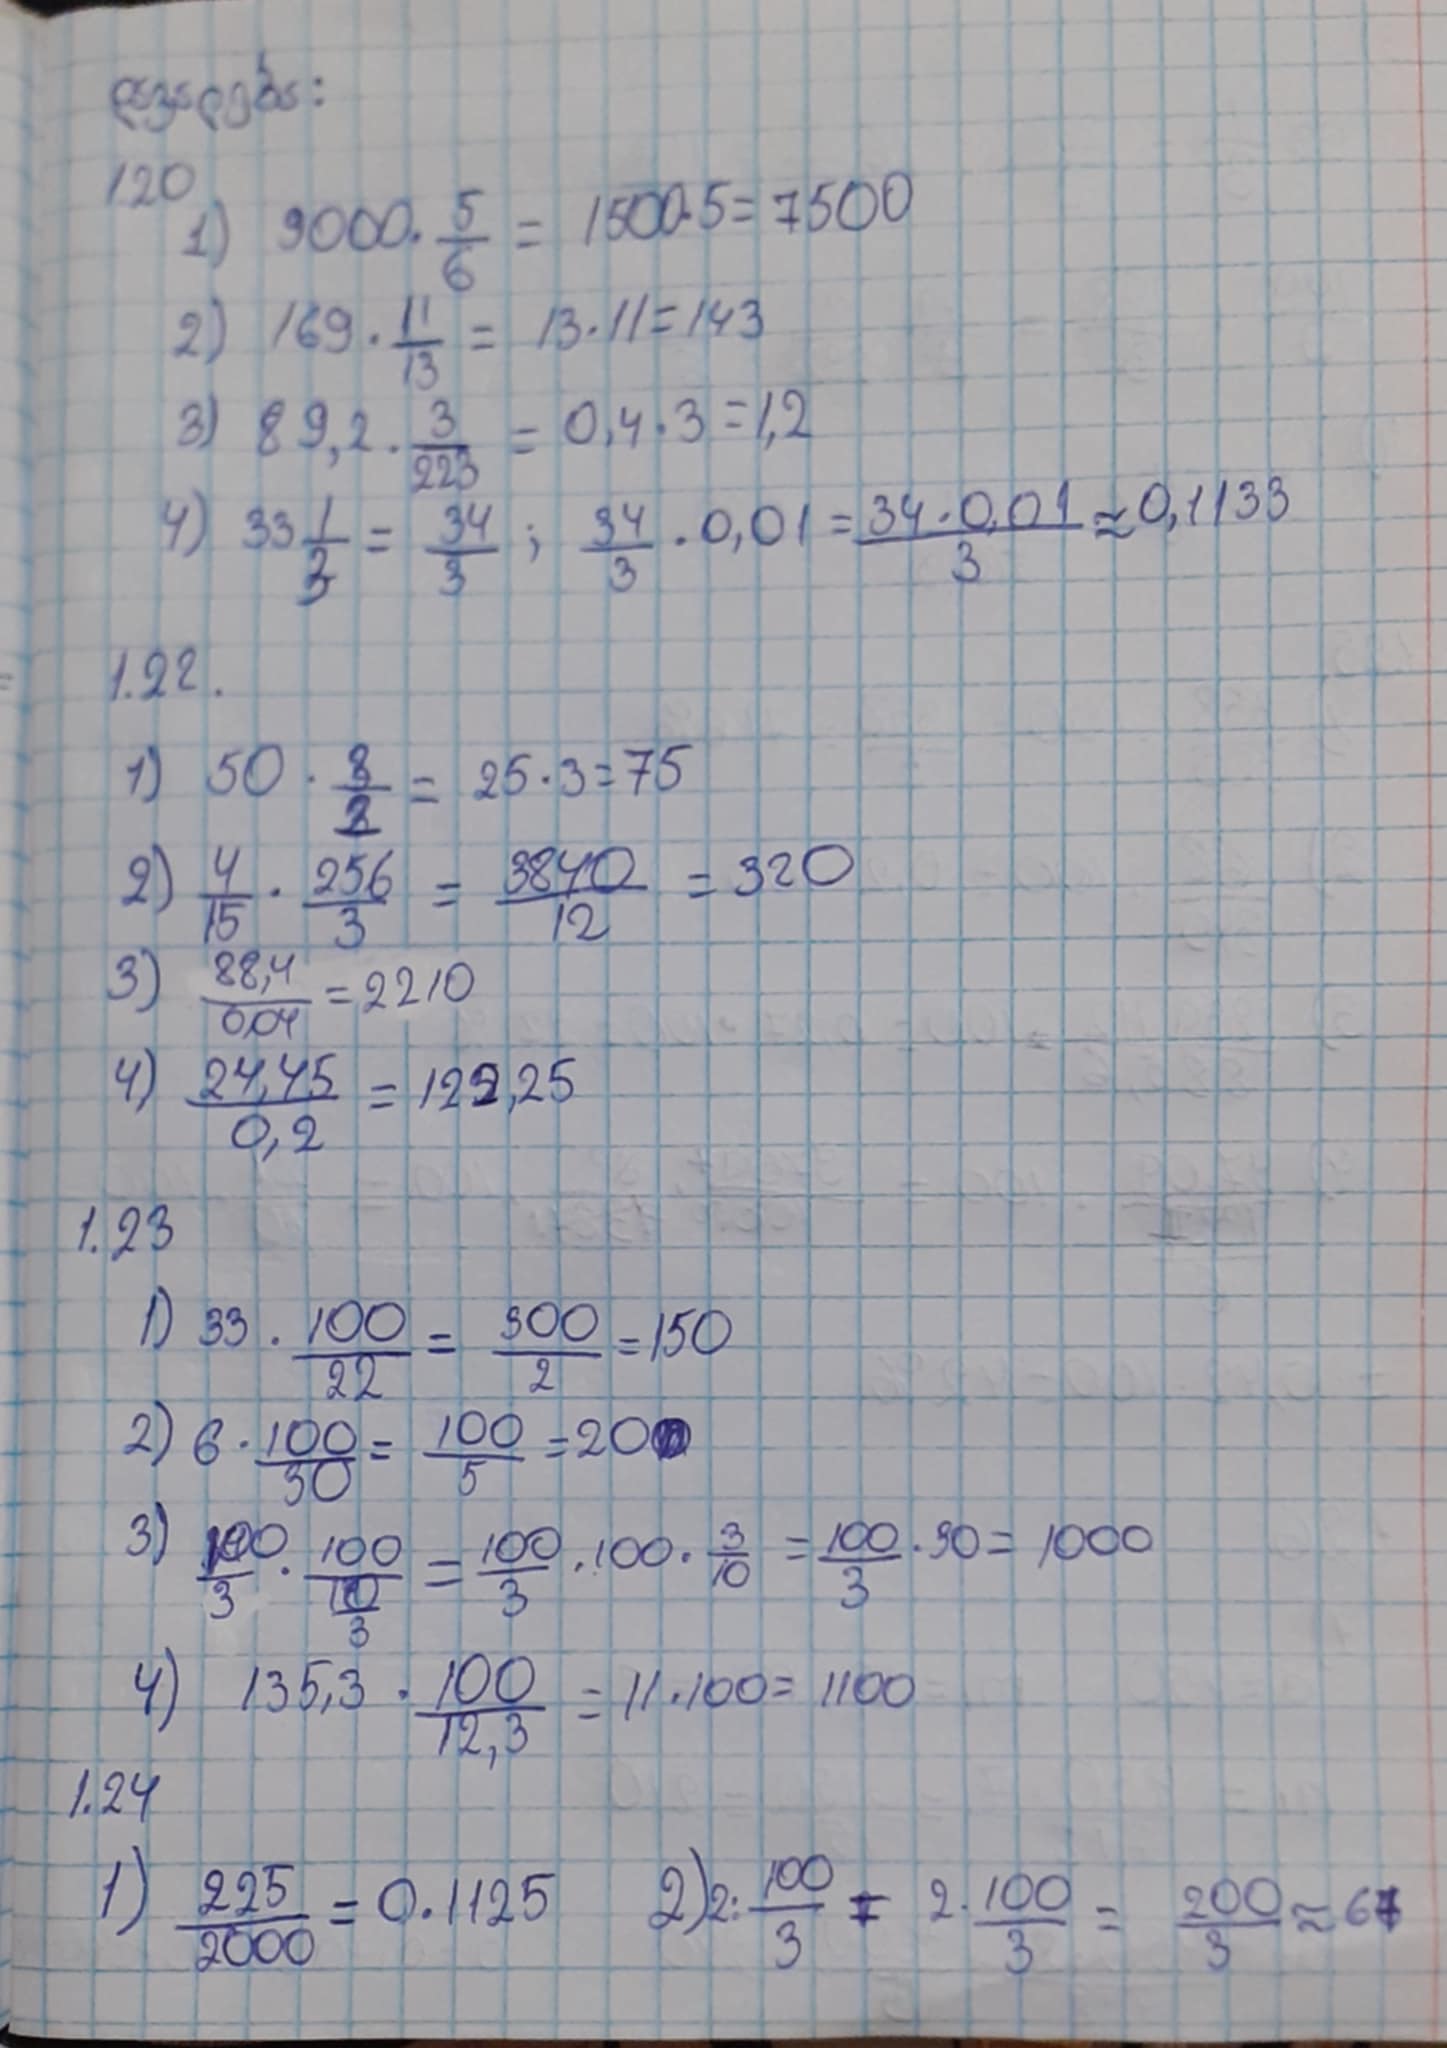 დავალება:
1.20
1) 9000 · 5/6 = 1500·5 = 7500
2) 169 · 11/13 = 13·11 = 143
3) 89,2 · 3/223 = 0,4·3 = 1,2
4) 33 1/3 = 34/3 ; 34/3 · 0,01 = 34·0,01/3 ≈ 0,1133
1.22.
1) 50 · 3/2 = 25·3 = 75
2) 4/15 · 256/3 = 3840/12 = 320
3) 88,4/0,04 = 2210
4) 24,45/0,2 = 122,25
1.23
1) 33 · 100/22 = 300/2 = 150
2) 6 · 100/30 = 100/5 = 20
3) 100/3 · 100/(10/3) = 100/3 · 100 · 3/10 = 100/3 · 30 = 1000
4) 135,3 · 100/12,3 = 11·100 = 1100
1.24
1) 225/2000 = 0.1125 2) 2: 100/3 = 2 · 100/3 = 200/3 ≈ 67